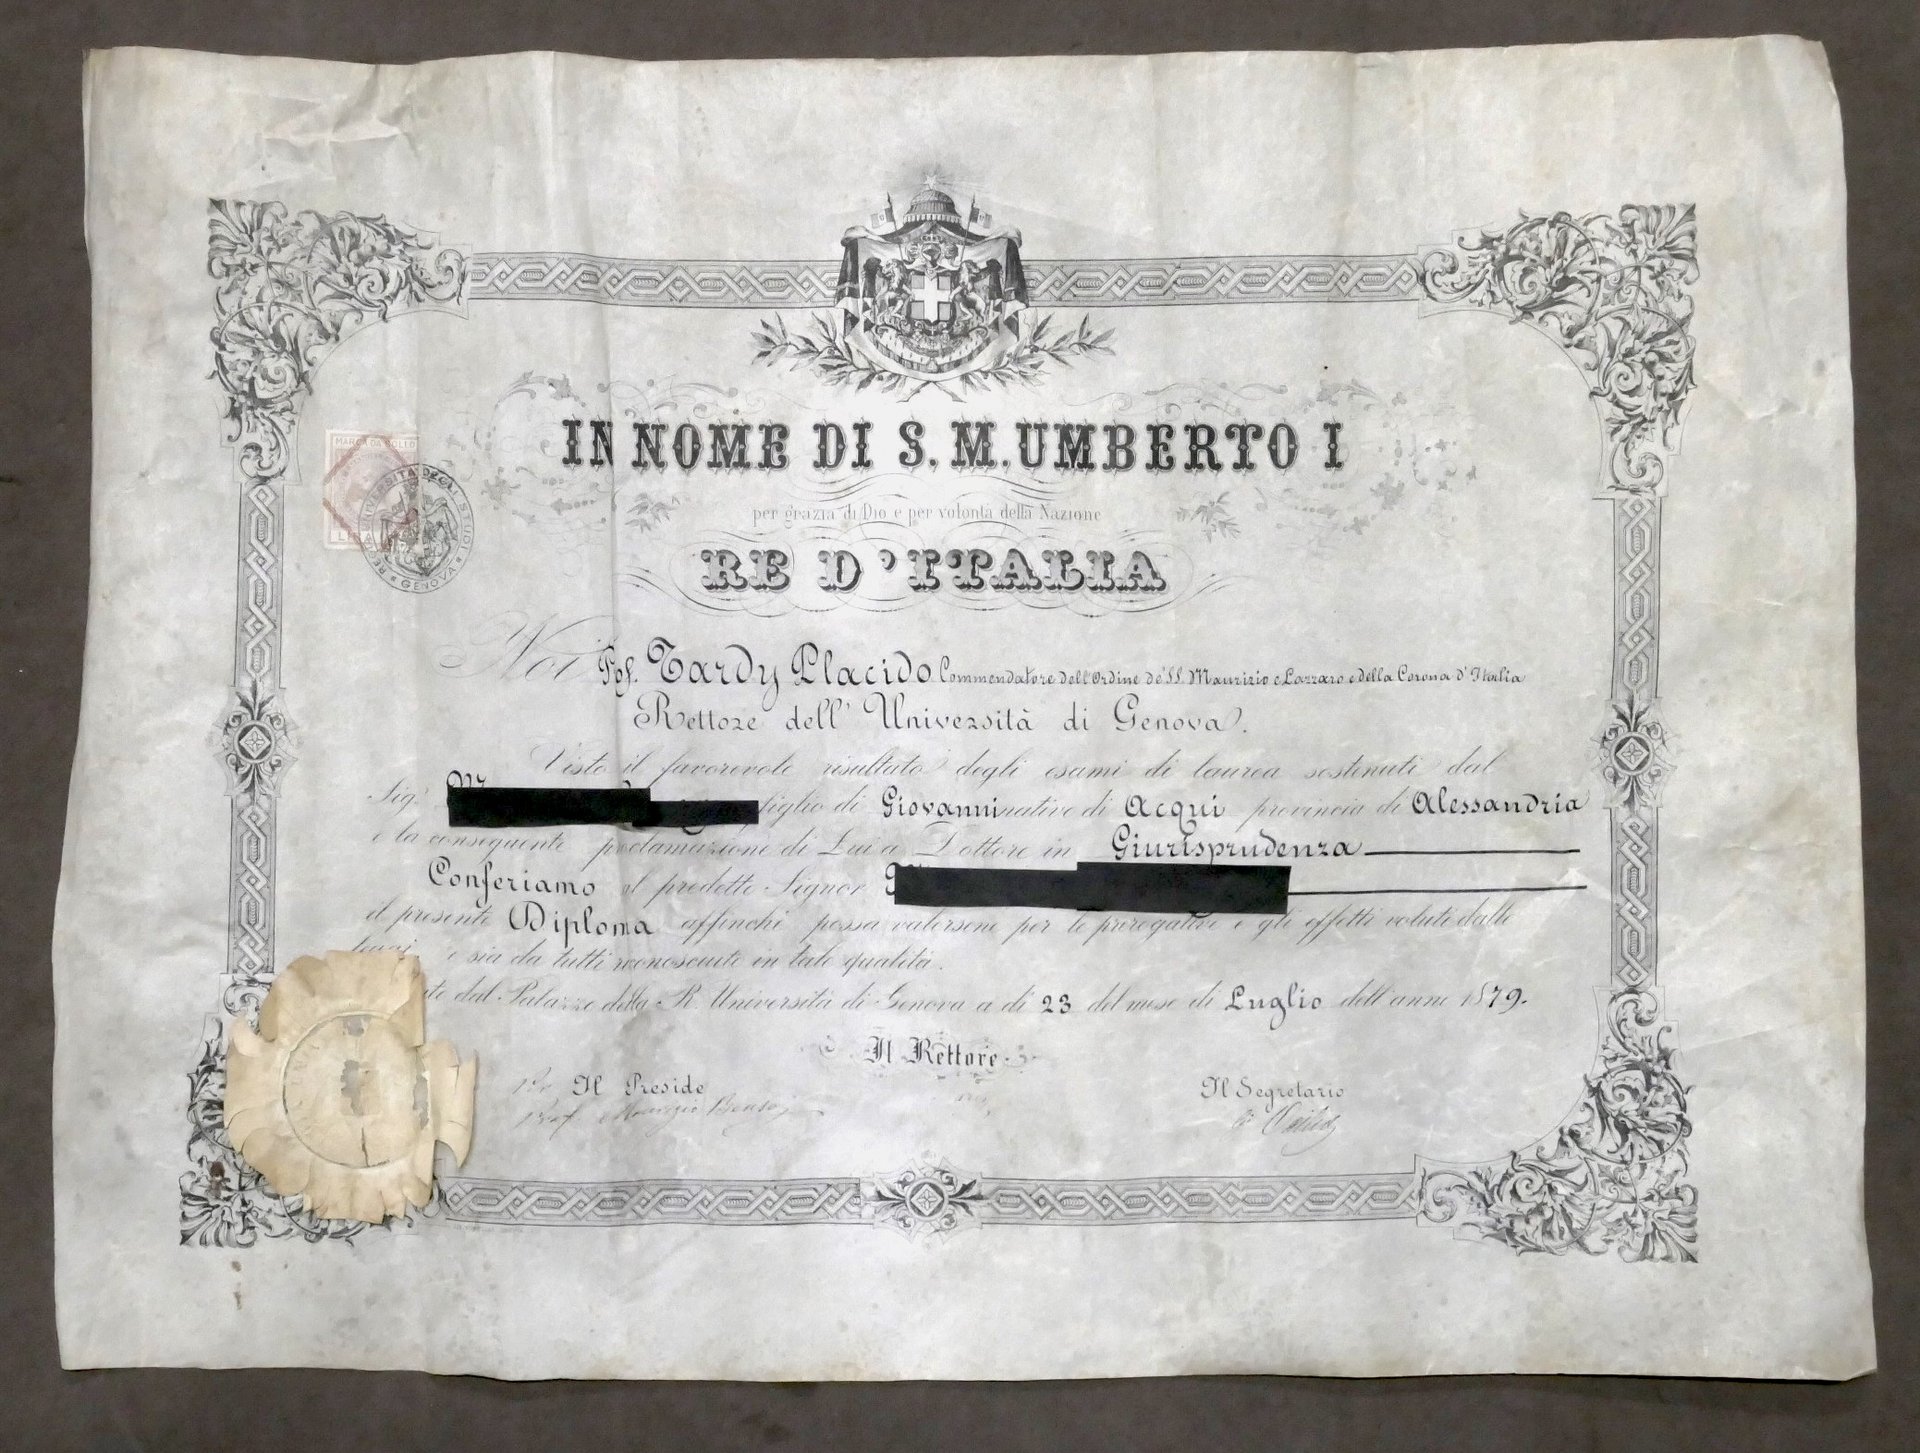 IN NOME DI S. M. UMBERTO I
per grazia di Dio e per volontà della Nazione
RE D'ITALIA
MARCA DA BOLLO
REGIA UNIVERSITÀ DEGLI STUDI
GENOVA
Noi Prof. Tardy Placido Commendatore dell'Ordine de' SS. Maurizio e Lazzaro e della Corona d'Italia
Rettore dell' Università di Genova.
Visto il favorevole risultato degli esami di laurea sostenuti dal
Sig. figlio di Giovanni nativo di Acqui provincia di Alessandria
e la conseguente proclamazione di Lui a Dottore in Giurisprudenza
Conferiamo al predetto Signor
il presente Diploma affinchè possa valersene per le prerogative e gli effetti voluti dalle
leggi e sia da tutti riconosciuto in tale qualità.
dal Palazzo della R. Università di Genova a dì 23 del mese di Luglio dell'anno 1879.
Il Rettore
Il Preside
Il Segretario
Prof. Maurizio